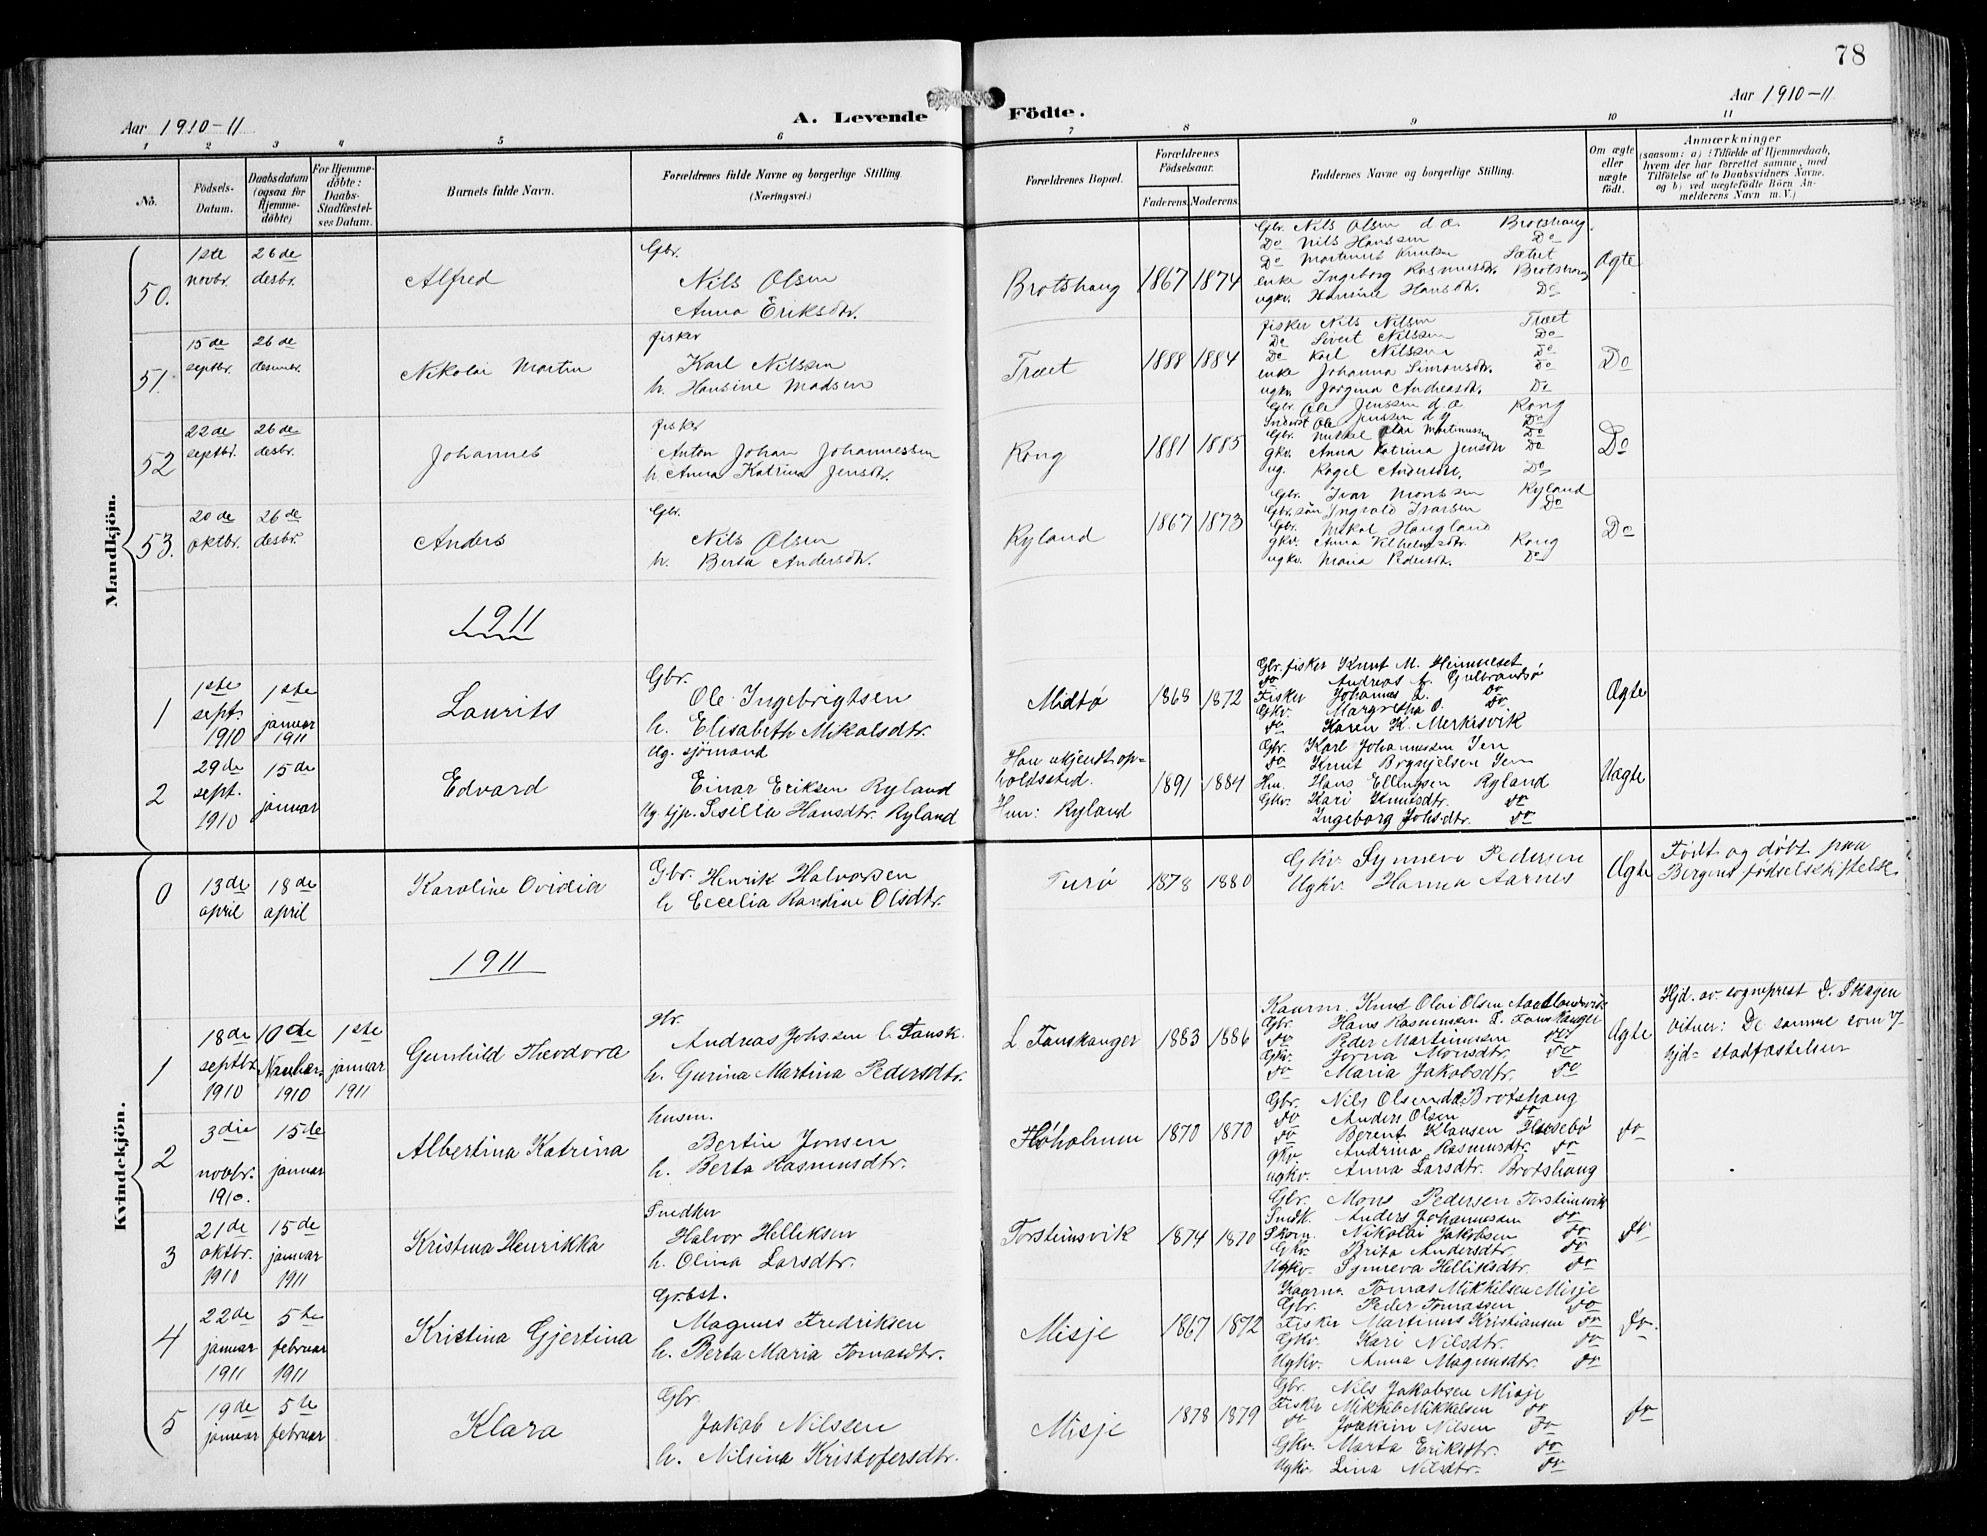 78
Aar 1910-11
A. Levende Födte.
Aar 1910-11
1 2 3 4 5 6 7 8 9 10 11
No.
Födsels-Datum.
Daabsdatum (ogsaa for Hjemme-döbte)
For Hjemme-döbte: Daabs-Stadfæstel-ses Datum.
Barnets fulde Navn.
Forældrenes fulde Navne og borgerlige Stilling
(Næringsvei.)
Forældrenes Bopæl.
Forældrenes Födselsaar.
Faderens. Moderens.
Faddernes Navne og borgerlige Stilling.
Om ægte eller uægte födt.
Anmærkninger
(saasom: a) i Tilfælde af Hjemmedaab,
hvem der har forrettet samme, med
Tilföielse af to Daabsvidners Navne.
og b) ved uægtefödte Börn An-
melderens Navn m. V.)
Mandkjön.
50. 1ste novbr. 26de desbr. Alfred
Gbr.
Nils Olsen
Anna Eriksdtr.
Brotshaug 1867 1874
Gbr. Nils Olsen d.æ. Brotshaug
Do Nils Hanssen Do
Do Martinus Knutsen Sætet
enke Ingeborg Rasmusdtr. Brotshaug
ugkv. Hansine Hansdtr. Do
Ægte
51. 15de septbr. 26de Nikolai Martin
fisker
Karl Nilssen
h. Hansine Madsen
Træet 1888 1884
fisker Nils Nilsen Træet
Do Sivert Nilssen Do
Do Karl Nilssen Do
enke Johanna Simonsdtr. Do
ugkv. Jorgina Andreasdtr. Do
Do
52 22de septbr. 26de desbr. Johannes
fisker
Anton Johan Johannessen
h. Anna Katrina Jensdtr.
Rong 1881 1885
Gbr. Ole Jenssen d.æ Rong
Ole Jenssen d.y Do
Gbr. Mikkel Olai Martinussen Do
gkv. Anna Katrina Jensdtr Do
ug. Ragel Andersdtr. Do
Do
53. 20de oktbr. 26de desbr. Anders
Gbr.
Nils Olsen
h. Berta Andersdtr.
Ryland 1867 1873
Gbr. Ivar Monssen Ryland
Gbr.sön Ingvald Ivarsen Do
Gbr. Mikal Haugland
gkv. Anna Vilhelmsdtr. Rong
ugkv. Maria Pedersdtr. Do
Do
1911
1 1ste sept. 1910 1ste januar 1911 Laurits
Gbr.
Ole Ingebrigtsen
h. Elisabeth Mikalsdtr.
Midtø 1868 1872
Gbr. fisker Knut M. Heimneset
do Andreas A. Gulbrandsø
Fisker Johannes L. do
Gkv. Margretha O. do
do Karen K. Merkesvik
Ægte
2 29de sept. 1910 15de januar Edvard
Ug. sjömand
Einar Eriksen Ryland
Ug. tjp. Sesilia Hansdtr. Ryland
Han ukjendt op-
holdssted.
Hun: Ryland
1891 1884
Gbr. Karl Johannessen
do Knut
Hm. Hans Ellingsen Ryland
Gkv. Kari Knutsdtr. do
Ingeborg Johsdtr. do
Uægte
Kvindekjön.
0 13de april 18de april Karoline Ovidia
Gbr. Henrik Halvorsen
h Cecelia Randine Olsdtr.
Turø 1878 1880
Gkv. Synneva Pedersen
Ugkv. Hanna Aarnes
Ægte
Födt og döbt paa
Bergens födselsstiftelse.
1911
1 18de septbr. 1910 10de 1910 1ste januar 1911 Gunhild Theodora
gbr.
Andreas Johssen L. Fansk.
h. Gurina Martina Pedersdtr.
L. Fanskanger 1883 1886
Kaarm. Knut Olai Olsen
Gbr. Hans Rasmussen L. Fanskanger
do Peder Martinussen do
Gkv. Jorna Monsdtr. do
do Maria Jakobsdtr. do
Ægte
Hjd. av sogneprest D. Skagen
Vitner: De samme som v/
hjd- stadfæstelsen
2 3die novbr. 1910. 15de januar Albertina Katrina
husm.
Bertin Jonsen
h. Berta Rasmusdtr.
Flöholmen 1870 1870
Gbr. Nils Olsen d.æ Brotshaug
do Anders Olsen do
do Berent Klausen
gkv. Andrina Rasmusdtr. do
ugkv. Anna Larsdtr. Brotshaug
do
3 21de oktbr. 1910 15de januar 1911 Kristina Henrikka
Snedker
Halvor Helliksen
h. Olina Larsdtr.
Torsteinsvik 1874 1870
Gbr. Mons Pedersen Torsteinsvik
Snedk. Anders Johannessen do
Skom. Nikolai Jakobsen do
Gkv. Brita Andersdtr. do
Ugkv. Synneva Helliksdtr. do
do
4 22de januar 1911 5te februar 1911 Kristina Gjertina
Grbst.
Magnus Fredriksen
h. Berta Maria Tomasdtr.
Misje 1867 1872
Kaarm. Tomas Mikkelsen Misje
Gbr. Peder Tomassen do
Fisker Martinus Kristiansen do
Gkv. Kari Nilsdtr. do
Ugkv. Anna Magnusdtr. do
do.
5 19de januar 5te februar Klara
Gbr
Jakob Nilssen
h. Nilsina Kristofersdtr.
Misje 1878 1879
Gbr. Nils Jakobsen Misje
Fisker Mikkel Mikkelsen do
do Joakim Nilsen do
Gkv. Marta Eriksdtr. do
Ugkv. Lina Nilsdtr. do
do